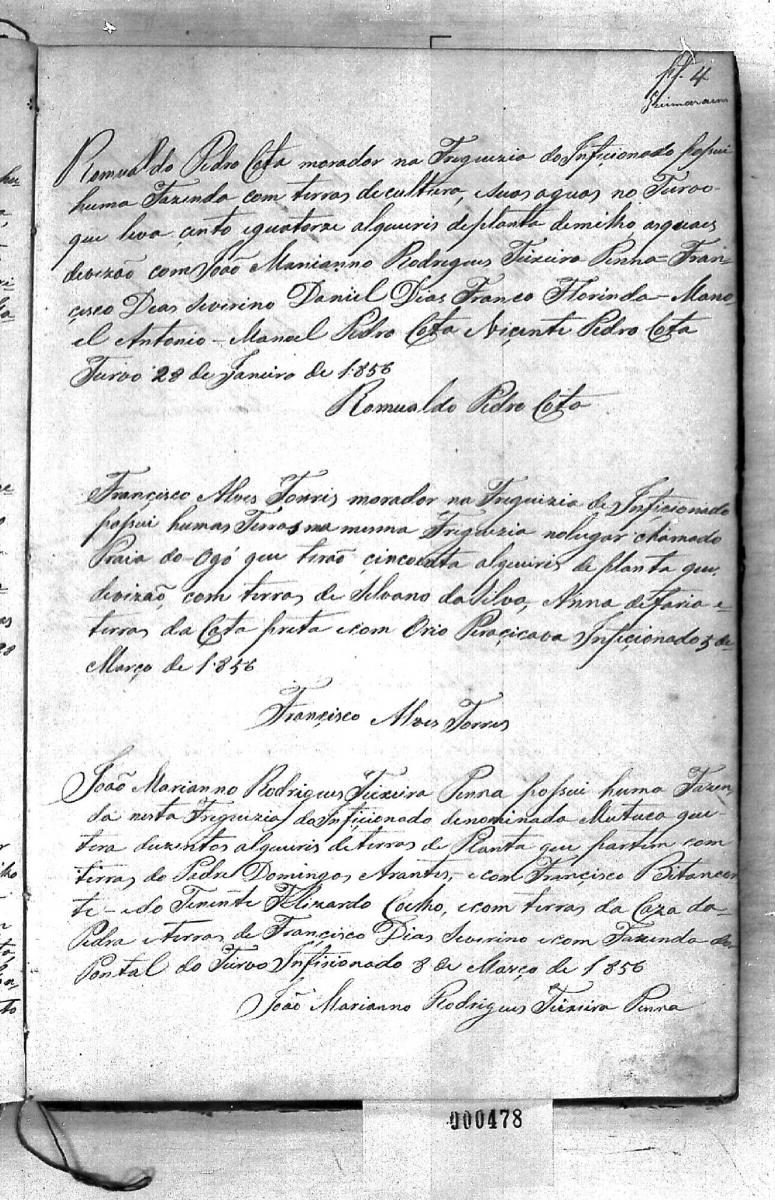 ff. 4
Guimaraens
Romualdo Pedro Cota morador na Freguizia do Inficionado possui
huma Fazenda com terras de cultura, e suas aguas no Turvo
que leva cento e quatorze alqueiris de planta de milho as quaes
devizão com João Marianno Rodrigues Teixeira Penna = Fran-
cisco Dias Severino Daniel Dias Franco Florinda - Mano-
el Antonio - Manoel Pedro Cota Vicente Pedro Cota
Turvo 28 de Janeiro de 1.856
Romualdo Pedro Cota
Francisco Alves Torris morador na Freguizia do Inficionado
possui humas Terras na mesma Freguizia no lugar chamado
Praia do Ogó que terão cincoenta alqueiris de planta que
devizão com terras de Silvano da Silva, Anna de Faria e
terras da Cata preta e com Orio Piraçicava Inficionado 5 de
Março de 1.856
Francisco Alves Torres
João Marianno Rodrigues Teixeira Penna possui huma Fazen-
da nesta Freguizia do Inficionado denominada Mutuca que
tera duzentos alqueiris de terras de Planta que partem com
terras do Padre Domingos Arantes, e com Francisco Bitancor
te - e do Tenente Felizardo Coelho, e com terras da Caza da
Pedra e terras de Francisco Dias Severino e com Fazenda do
Pontal do Turvo Inficionado 8 de Março de 1856
João Marianno Rodrigues Teixeira Penna
000478